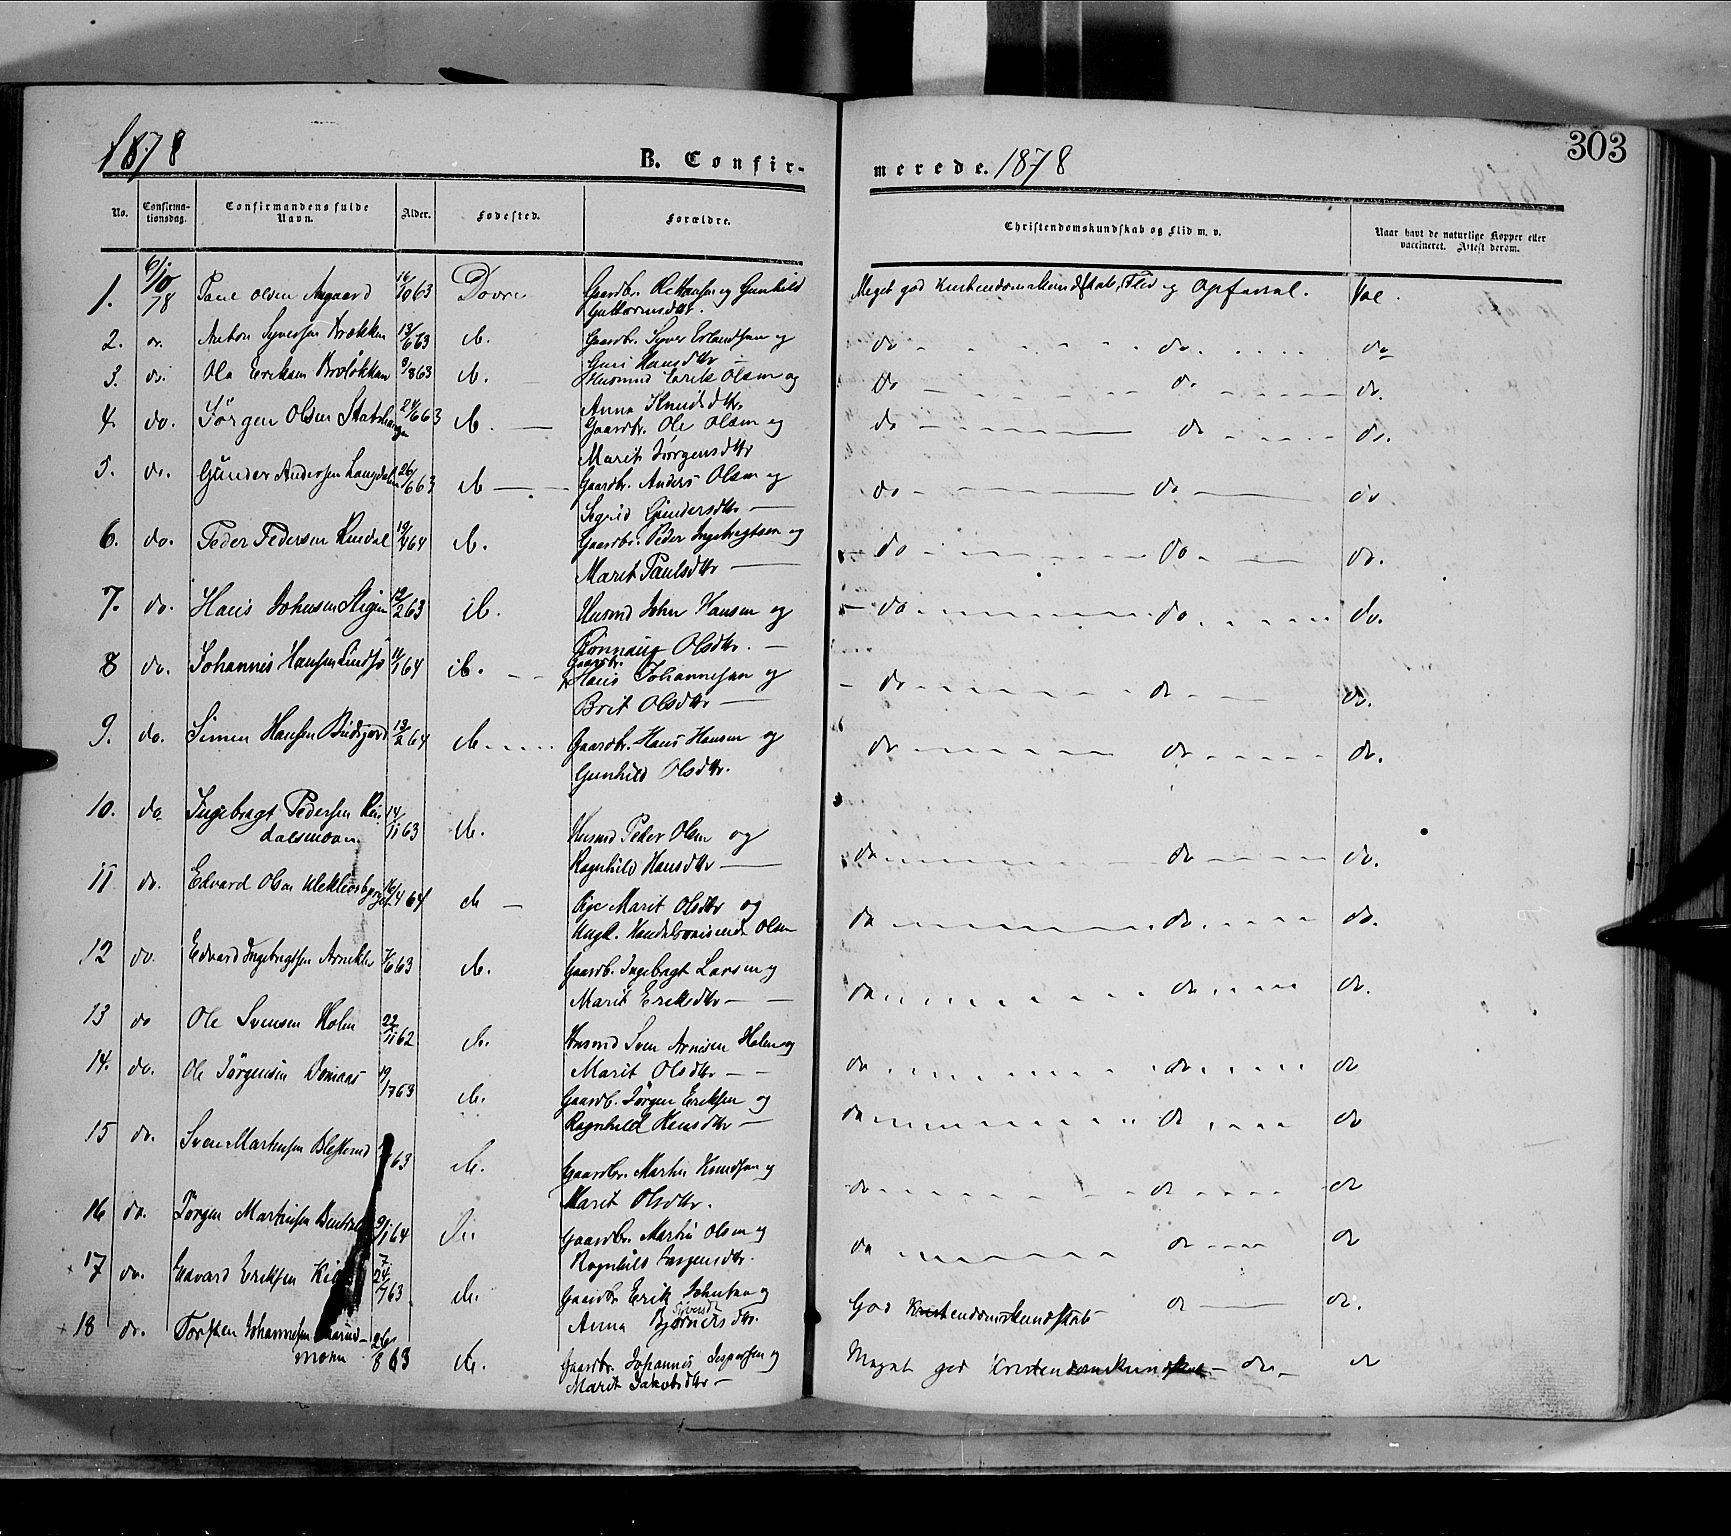 303
1878
B. Confir-
merede. 1878
No.
Confirma-
tionsdag.
Confirmandens fulde
Navn.
Alder.
Fødested.
Forældre.
Christendomskundskab og Flid m. v.
Naar havt de naturlige Kopper eller
vaccineret. Attest derom.
1. 6/10 78 Paul Olsen Aagaard 16/9 63 Dovre Gaardbr. Ole Hansen og Gunhild
Guttormsdtr. Meget god Kristendomskundskab, Flid og Opførsel. Vac.
2. do. Anton Syversen 13/6 63 ib. Gaardbr. Syver Erlandsen og
Guri Hansdtr do do do
3. do. Ole Eriksen 9/8 63 ib. Husmd Erik Olsen og
Anna Knudsdtr. do do do.
4. do. Jørgen Olsen 24/6 63 ib. Gaardbr. Ole Olsen og
Marit Jørgensdtr do do do.
5. do. Gunder Andersen Langdalen 26/6 63 ib Gaardbr. Anders Olsen og
Sigrid Gundersdtr do do do
6. do. Peder Pedersen Rindal 19/4 64 ib. Gaardbr. Peder Ingebregtsen og
Marit Paulsdtr do do do.
7. do. Hans Johnsen Stigen 12/2 63 ib. Husmd John Hansen og
Rønnaug Olsdtr. do do do.
8 do. Johannis Hansen Lindsø 11/1 64 ib. Gaardbr.
Hans Johannesen og
Brit Olsdtr do do do.
9. do. Simen Hansen 13/2 64 ib. Gaardbr. Hans Hansen og
Gunhild Olsdtr. do do do.
10. do Ingebregt Pedersen Rin
dalsmoen 14/11 63 ib. Husmd Peder Olsen og
Ragnhild Hansdtr do do do.
11 do. Edvard Olsen 16/4 64 ib Pige Marit Olsdtr og
Ungk. Handelsreisende Olsen do do do.
12 do. Edvard Ingebregtsen 7/6 63 ib. Gaardb. Ingebregt Larsen og
Marit Eriksdtr do do do.
13 do Ole Svensen Holm 22/11 62 ib. Husmd Sven Arnesen Holm og
Marit Olsdtr do do do
14. do. Ole Jørgensen Domaas 19/1 63 ib. Gaardb. Jørgen Eriksen og
Ragnhild Hansdtr do do do
15 do. Sven Martinsen 63 ib. Gaardbr. Martin Knudsen og
Marit Olsdtr. do do do
16 do. Jørgen Martinsen 9/1 64 Gaardbr. Martin Olsen og
Ragnhild Jørgensdtr. do do do
17 do. Edvard Eriksen 24/7 63 ib. Gaardbr Erik Johnsen og
Syversdt
Anna Bjørnersdtr. God Kristendomskundskab do do.
18 do. Torsten Johannesen
moen 26/8 63 ib. Gaardbr. Johannis Jespersen og
Marit Jakobsdtr Meget god Kristendomskundskab do. do